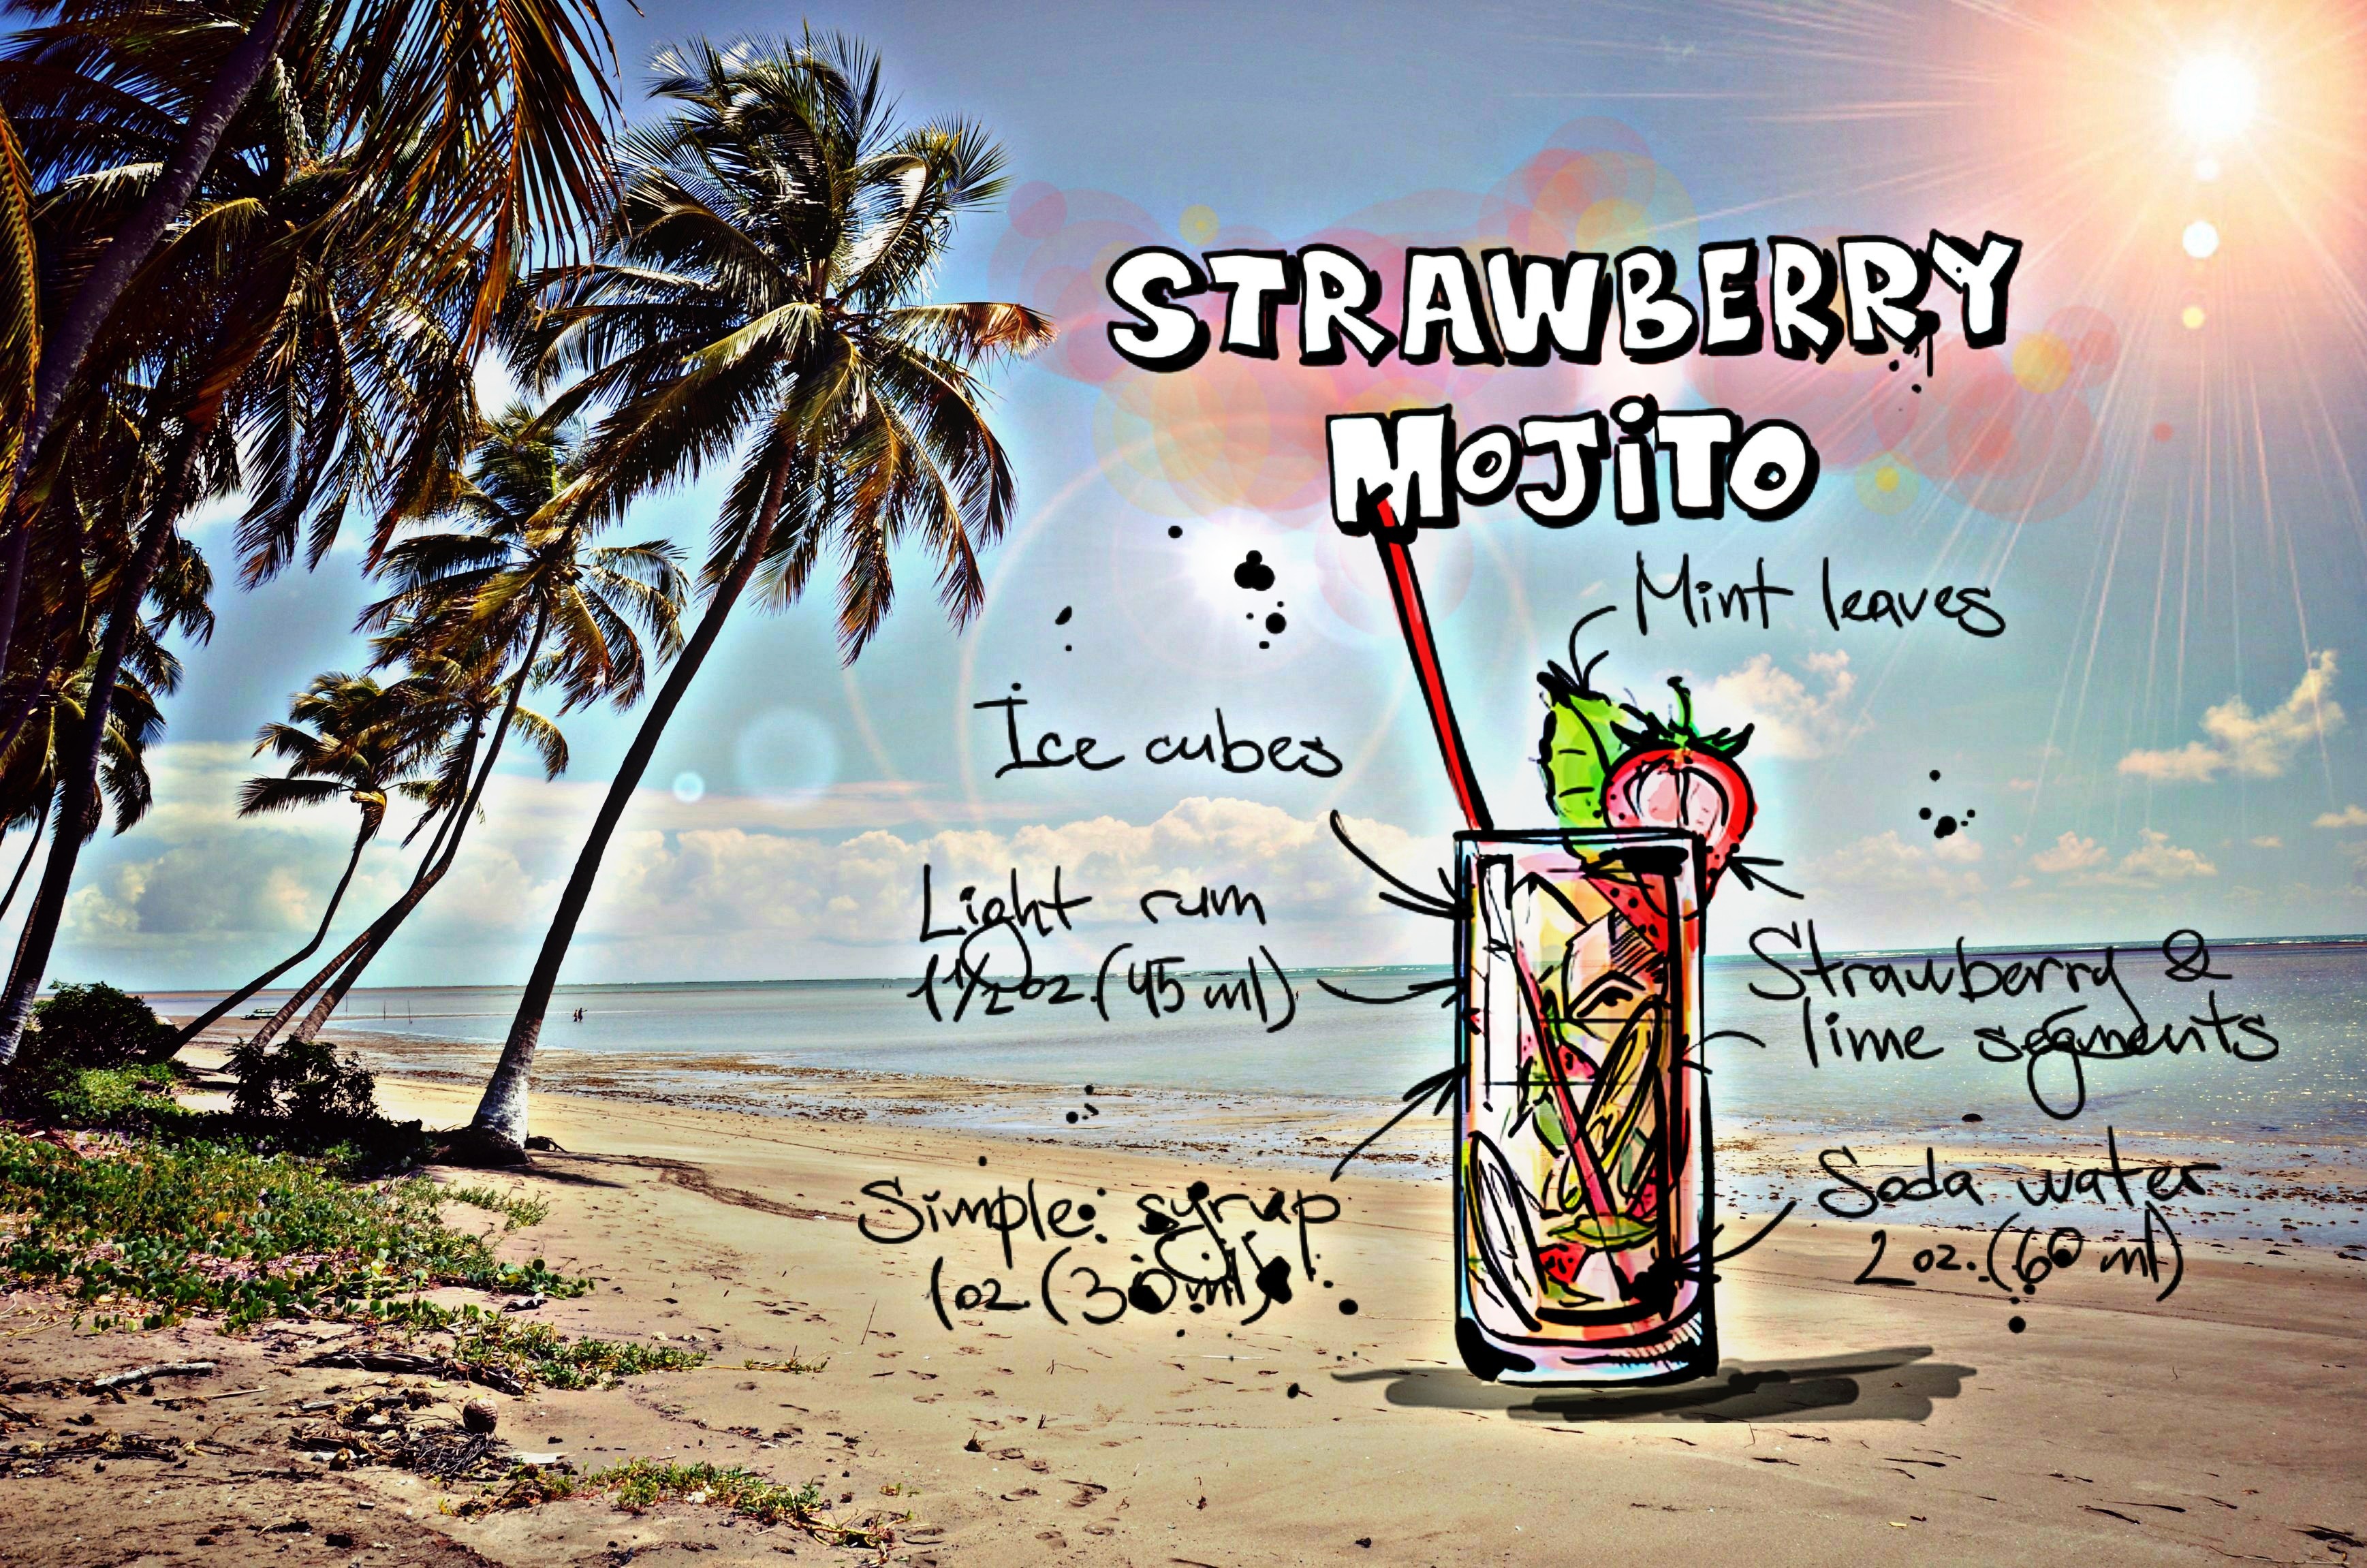 STRAWBERRY
MOJITO
Mint leaves
Ice cubes
Light rum
1 1/2 oz. (45 ml)
Strawberry &
lime segments
Simple syrup
1 oz (30 ml)
Soda water
2 oz. (60 ml)